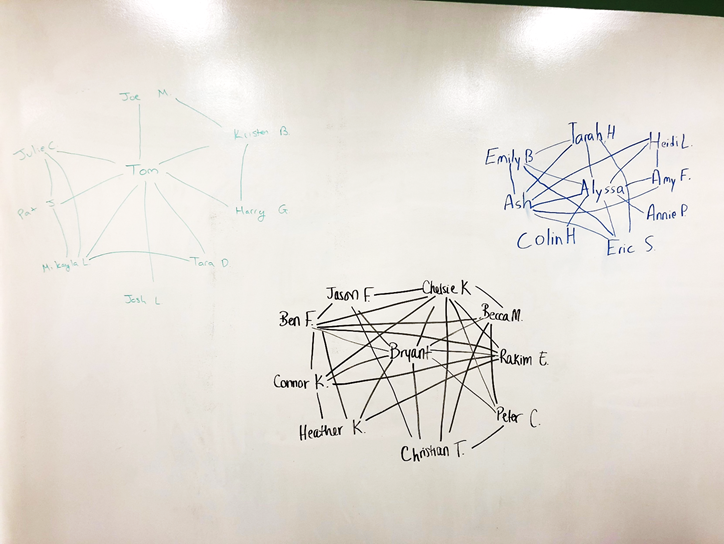 Joe M.
Kristen B.
Julie C.
Tom
Pat S
Harry G
Mikayla L
Tara D
Josh L
Tarah H
Heidi L.
Emily B
Amy F.
Alyssa
Ash
Annie P.
Colin H
Eric S.
Jason F.
Chelsie K
Ben F.
Becca M.
Bryant
Rakim E.
Connor K.
Peter C.
Heather K.
Christian T.